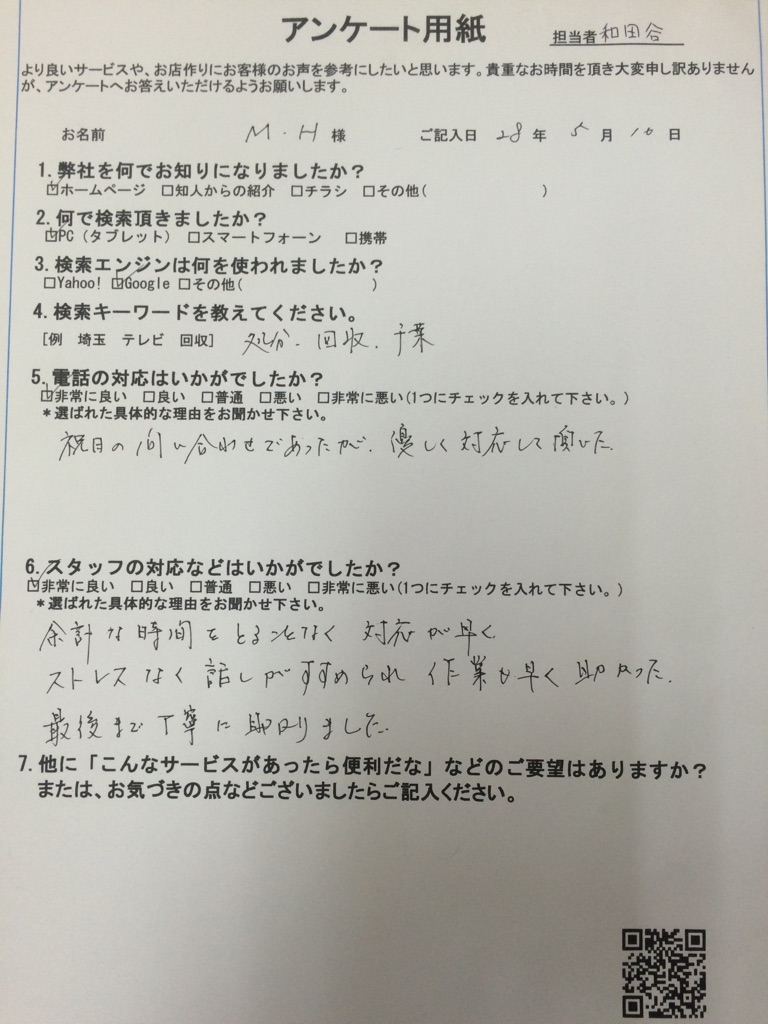 アンケート用紙
担当者 和田谷
より良いサービスや、お店作りにお客様のお声を参考にしたいと思います。貴重なお時間を頂き大変申し訳ありません
が、アンケートへお答えいただけるようお願いします。
お名前 M・H 様 ご記入日 28 年 5 月 10 日
1.弊社を何でお知りになりましたか？
☑ホームページ □知人からの紹介 □チラシ □その他( )
2.何で検索頂きましたか？
☑PC（タブレット） □スマートフォーン □携帯
3.検索エンジンは何を使われましたか？
□Yahoo! ☑Google □その他( )
4.検索キーワードを教えてください。
[例 埼玉 テレビ 回収] 処分、回収、千葉
5.電話の対応はいかがでしたか？
☑非常に良い □良い □普通 □悪い □非常に悪い(1つにチェックを入れて下さい。)
＊選ばれた具体的な理由をお聞かせ下さい。
祝日の問い合わせであったが、優しく対応して頂いた。
6.スタッフの対応などはいかがでしたか？
☑非常に良い □良い □普通 □悪い □非常に悪い(1つにチェックを入れて下さい。)
＊選ばれた具体的な理由をお聞かせ下さい。
余計な時間をとることなく 対応が早く
ストレスなく話しがすすめられ 作業も早く助かった。
最後まで丁寧に ました。
7.他に「こんなサービスがあったら便利だな」などのご要望はありますか？
または、お気づきの点などございましたらご記入ください。